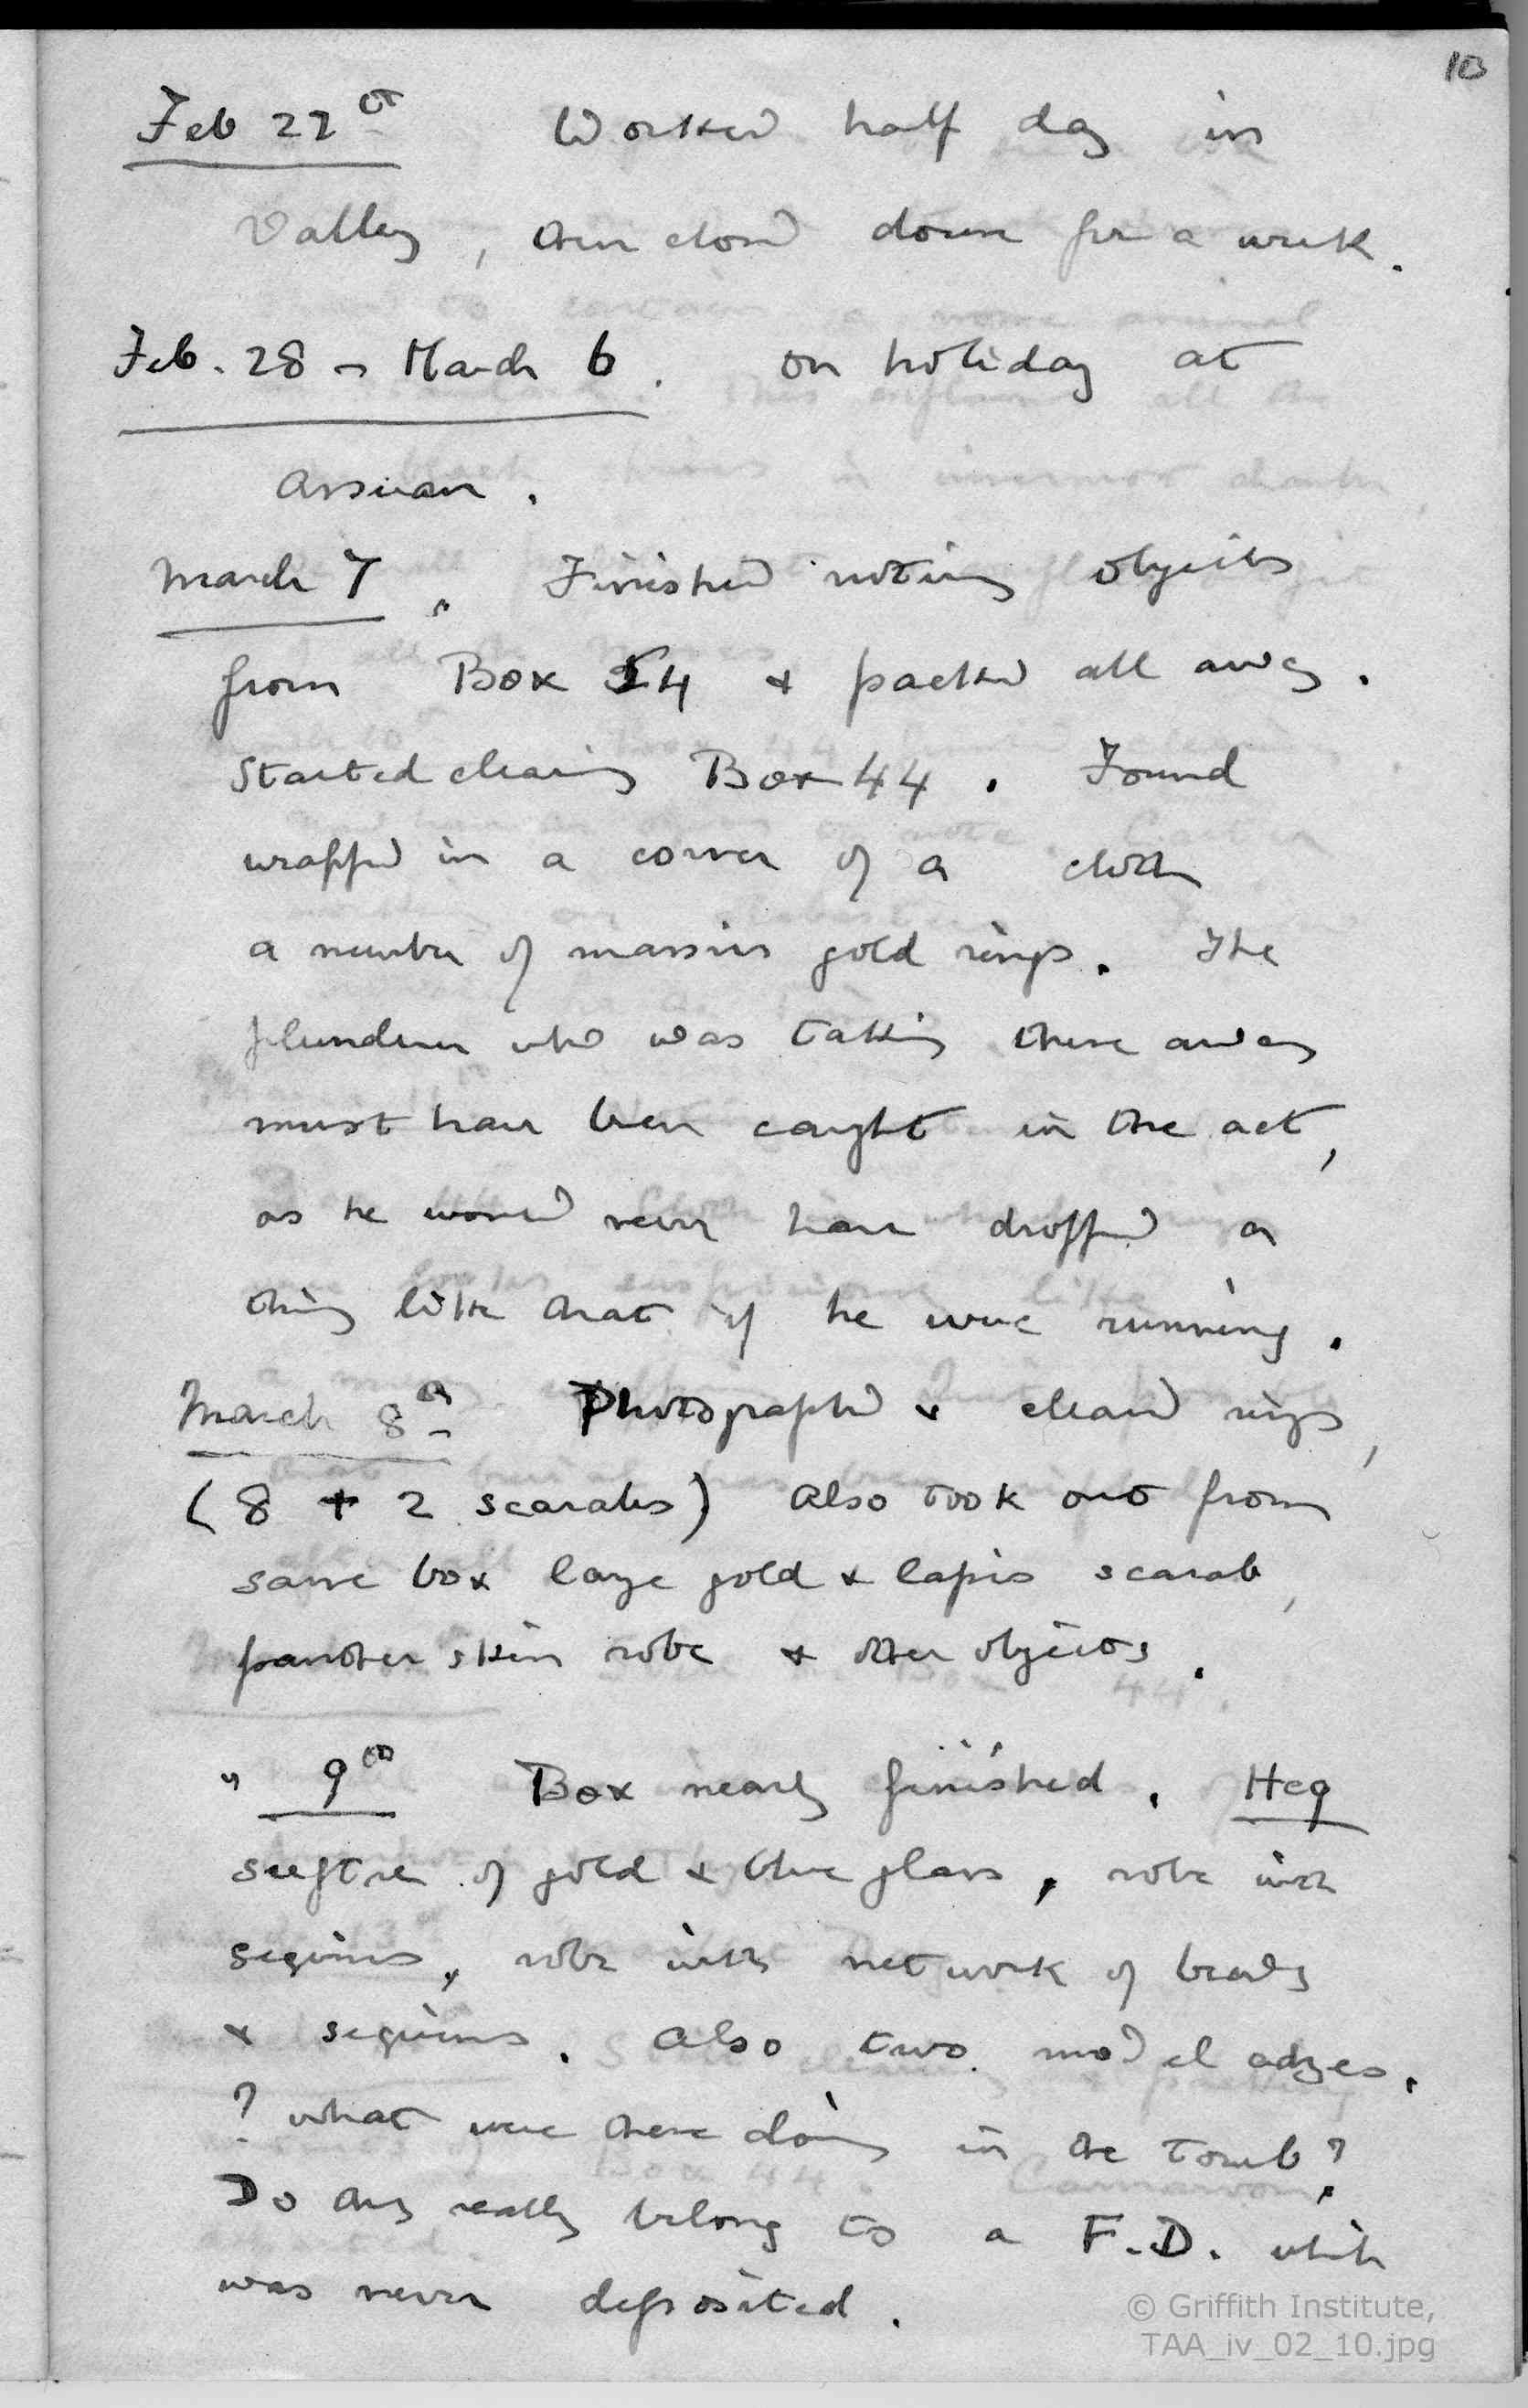 10
Feb 27th Worked half day in
Valley, then closed down for a week.
Feb. 28 - March 6. On holiday at
Assuan.
March 7. Finished noting objects
from Box 54 & packed all away.
Started clearing Box 44. Found
wrapped in a corner of a cloth
a number of massive gold rings. The
plunderer who was taking these away
must have been caught in the act,
as he would never have dropped a
thing like that if he were running.
March 8th Photographed & cleaned rings,
(8 + 2 scarabs) Also took out from
same box large gold & lapis scarab,
panther skin robe & other objects.
" 9th Box nearly finished. Heq
sceptre of gold & blue glass, robe with
sequins, robe with network of beads
& sequins. Also two model adzes.
? What were these doing in the tomb?
Do they really belong to a F.D. which
was never deposited.
© Griffith Institute,
TAA_iv_02_10.jpg